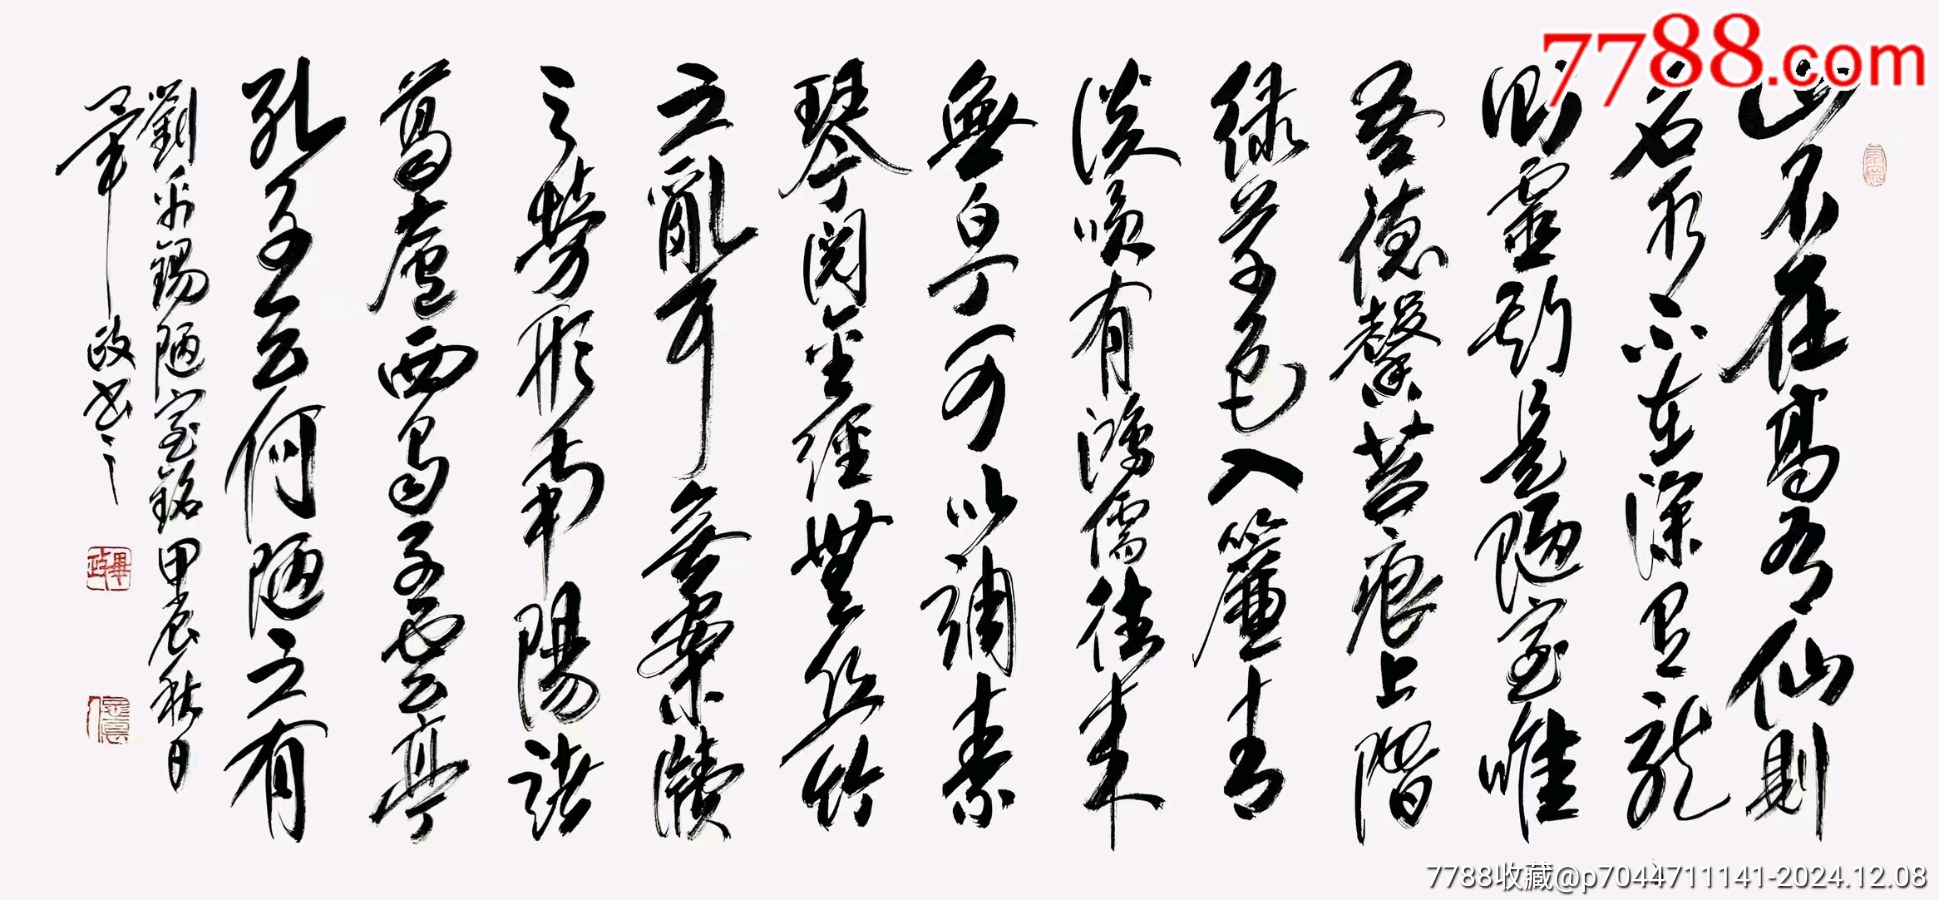 7788.com
山不在高有仙則
名水不在深有龍
則靈斯是陋室唯
吾德馨苔痕上階
绿草色入簾青
談咲有鴻儒往来
無白丁可以調素
琴閱金經無丝竹
之亂耳無案牘
之勞形南陽諸
葛廬西蜀子雲亭
孔子云何陋之有
劉禹錫陋室銘甲辰秋日
畢政书之
畢政
7788收藏@p7044711141-2024.12.08